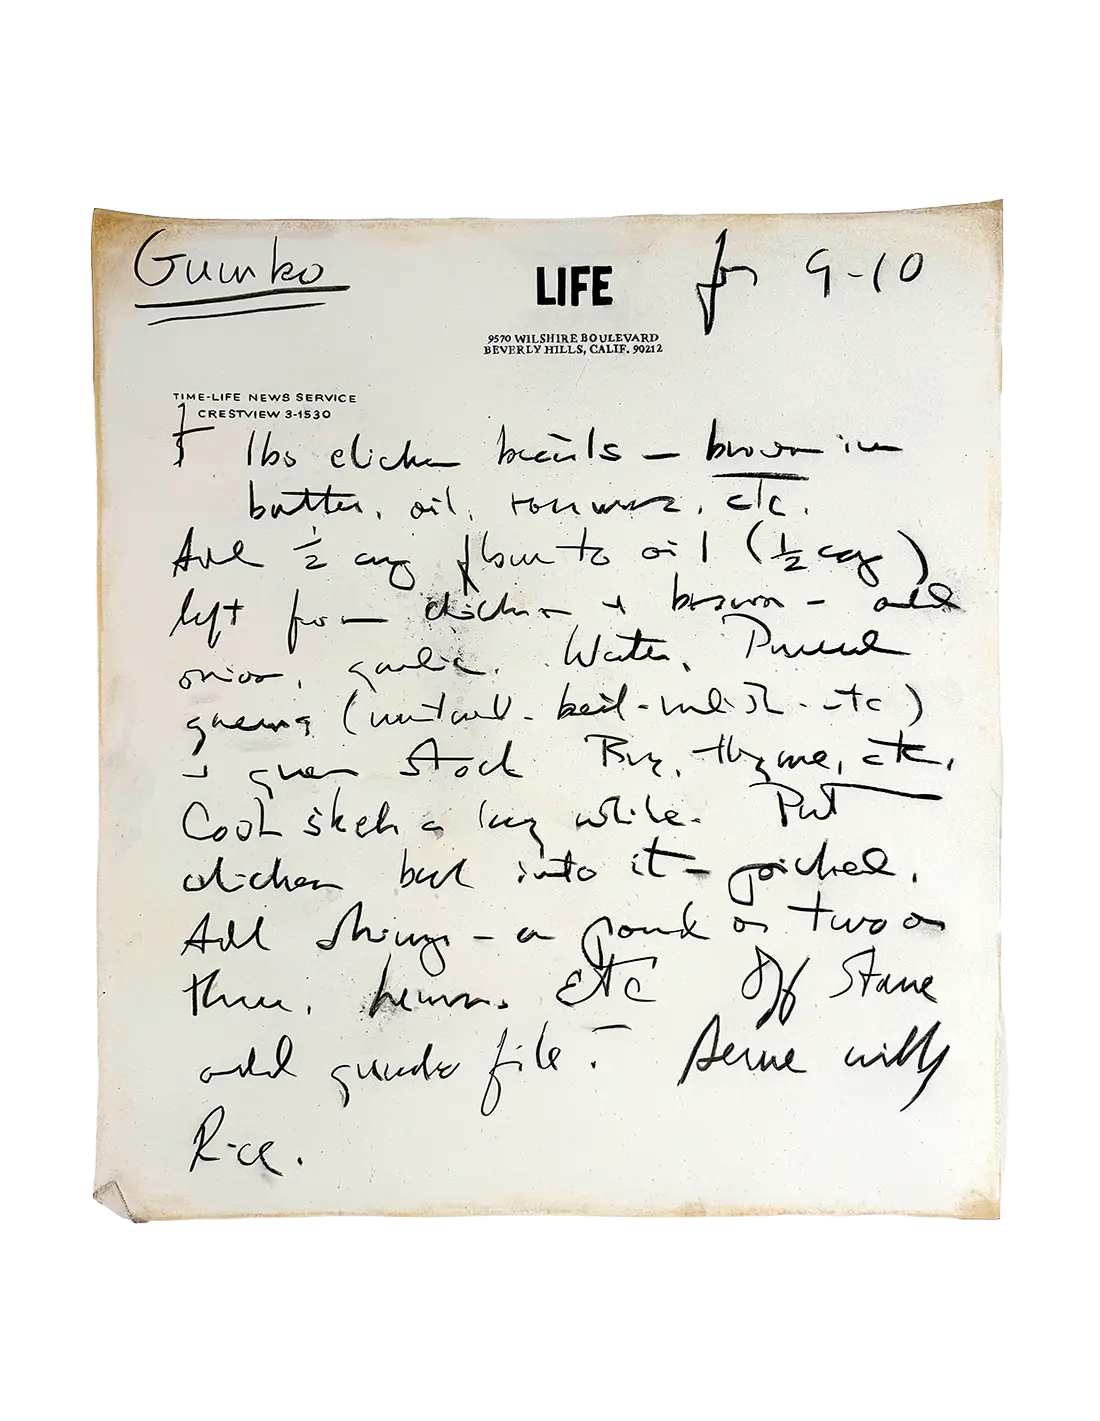 Gumbo
LIFE
for 9-10
9570 WILSHIRE BOULEVARD
BEVERLY HILLS, CALIF. 90212
TIME-LIFE NEWS SERVICE
CRESTVIEW 3-1530
lbs chicken breasts — brown in
butter, oil, etc.
Add 1/2 cup flour to oil (1/2 cup)
left from chicken + brown - add
onion, garlic. Water, Pureed
greens (mustard - beet - radish - etc)
+ green stock Bay, thyme, etc.
Cook a long while. Put
chicken back into it - picked.
Add shrimp - a pound or two or
three, ETC Off stove
add gumbo file. Serve with
Rice.